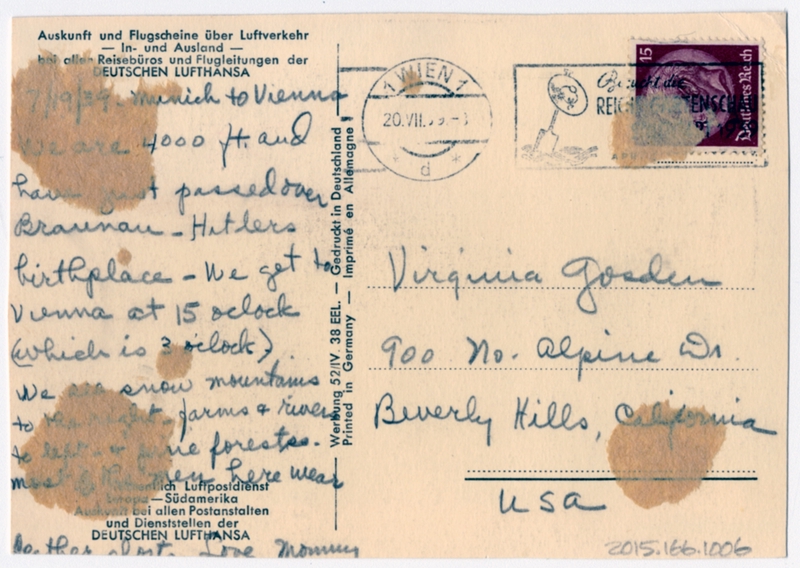 Auskunft und Flugscheine über Luftverkehr
— In- und Ausland —
bei allen Reisebüros und Flugleitungen der
DEUTSCHEN LUFTHANSA
7/19/39. Munich to Vienna
We are 4000 ft. and
have just passed over
Braunau - Hitlers
birthplace - We get to
Vienna at 15 oclock
(which is 3 oclock)
We are snow mountains
to the right - farms & rivers
to left - & pine forests.
most of the men here wear
Luftpostdienst
Europa — Südamerika
Auskunft bei allen Postanstalten
und Dienststellen der
DEUTSCHEN LUFTHANSA
Love Mommy
Werbung 52/IV. 38 EEL. — Gedruckt in Deutschland
Printed in Germany — Imprimé en Allemagne
1 WIEN 1
20.VII.
d
Besucht die
15
Deutsches Reich
Virginia Gosden
900 No. Alpine Dr.
Beverly Hills, California
USA
2015.166.1006